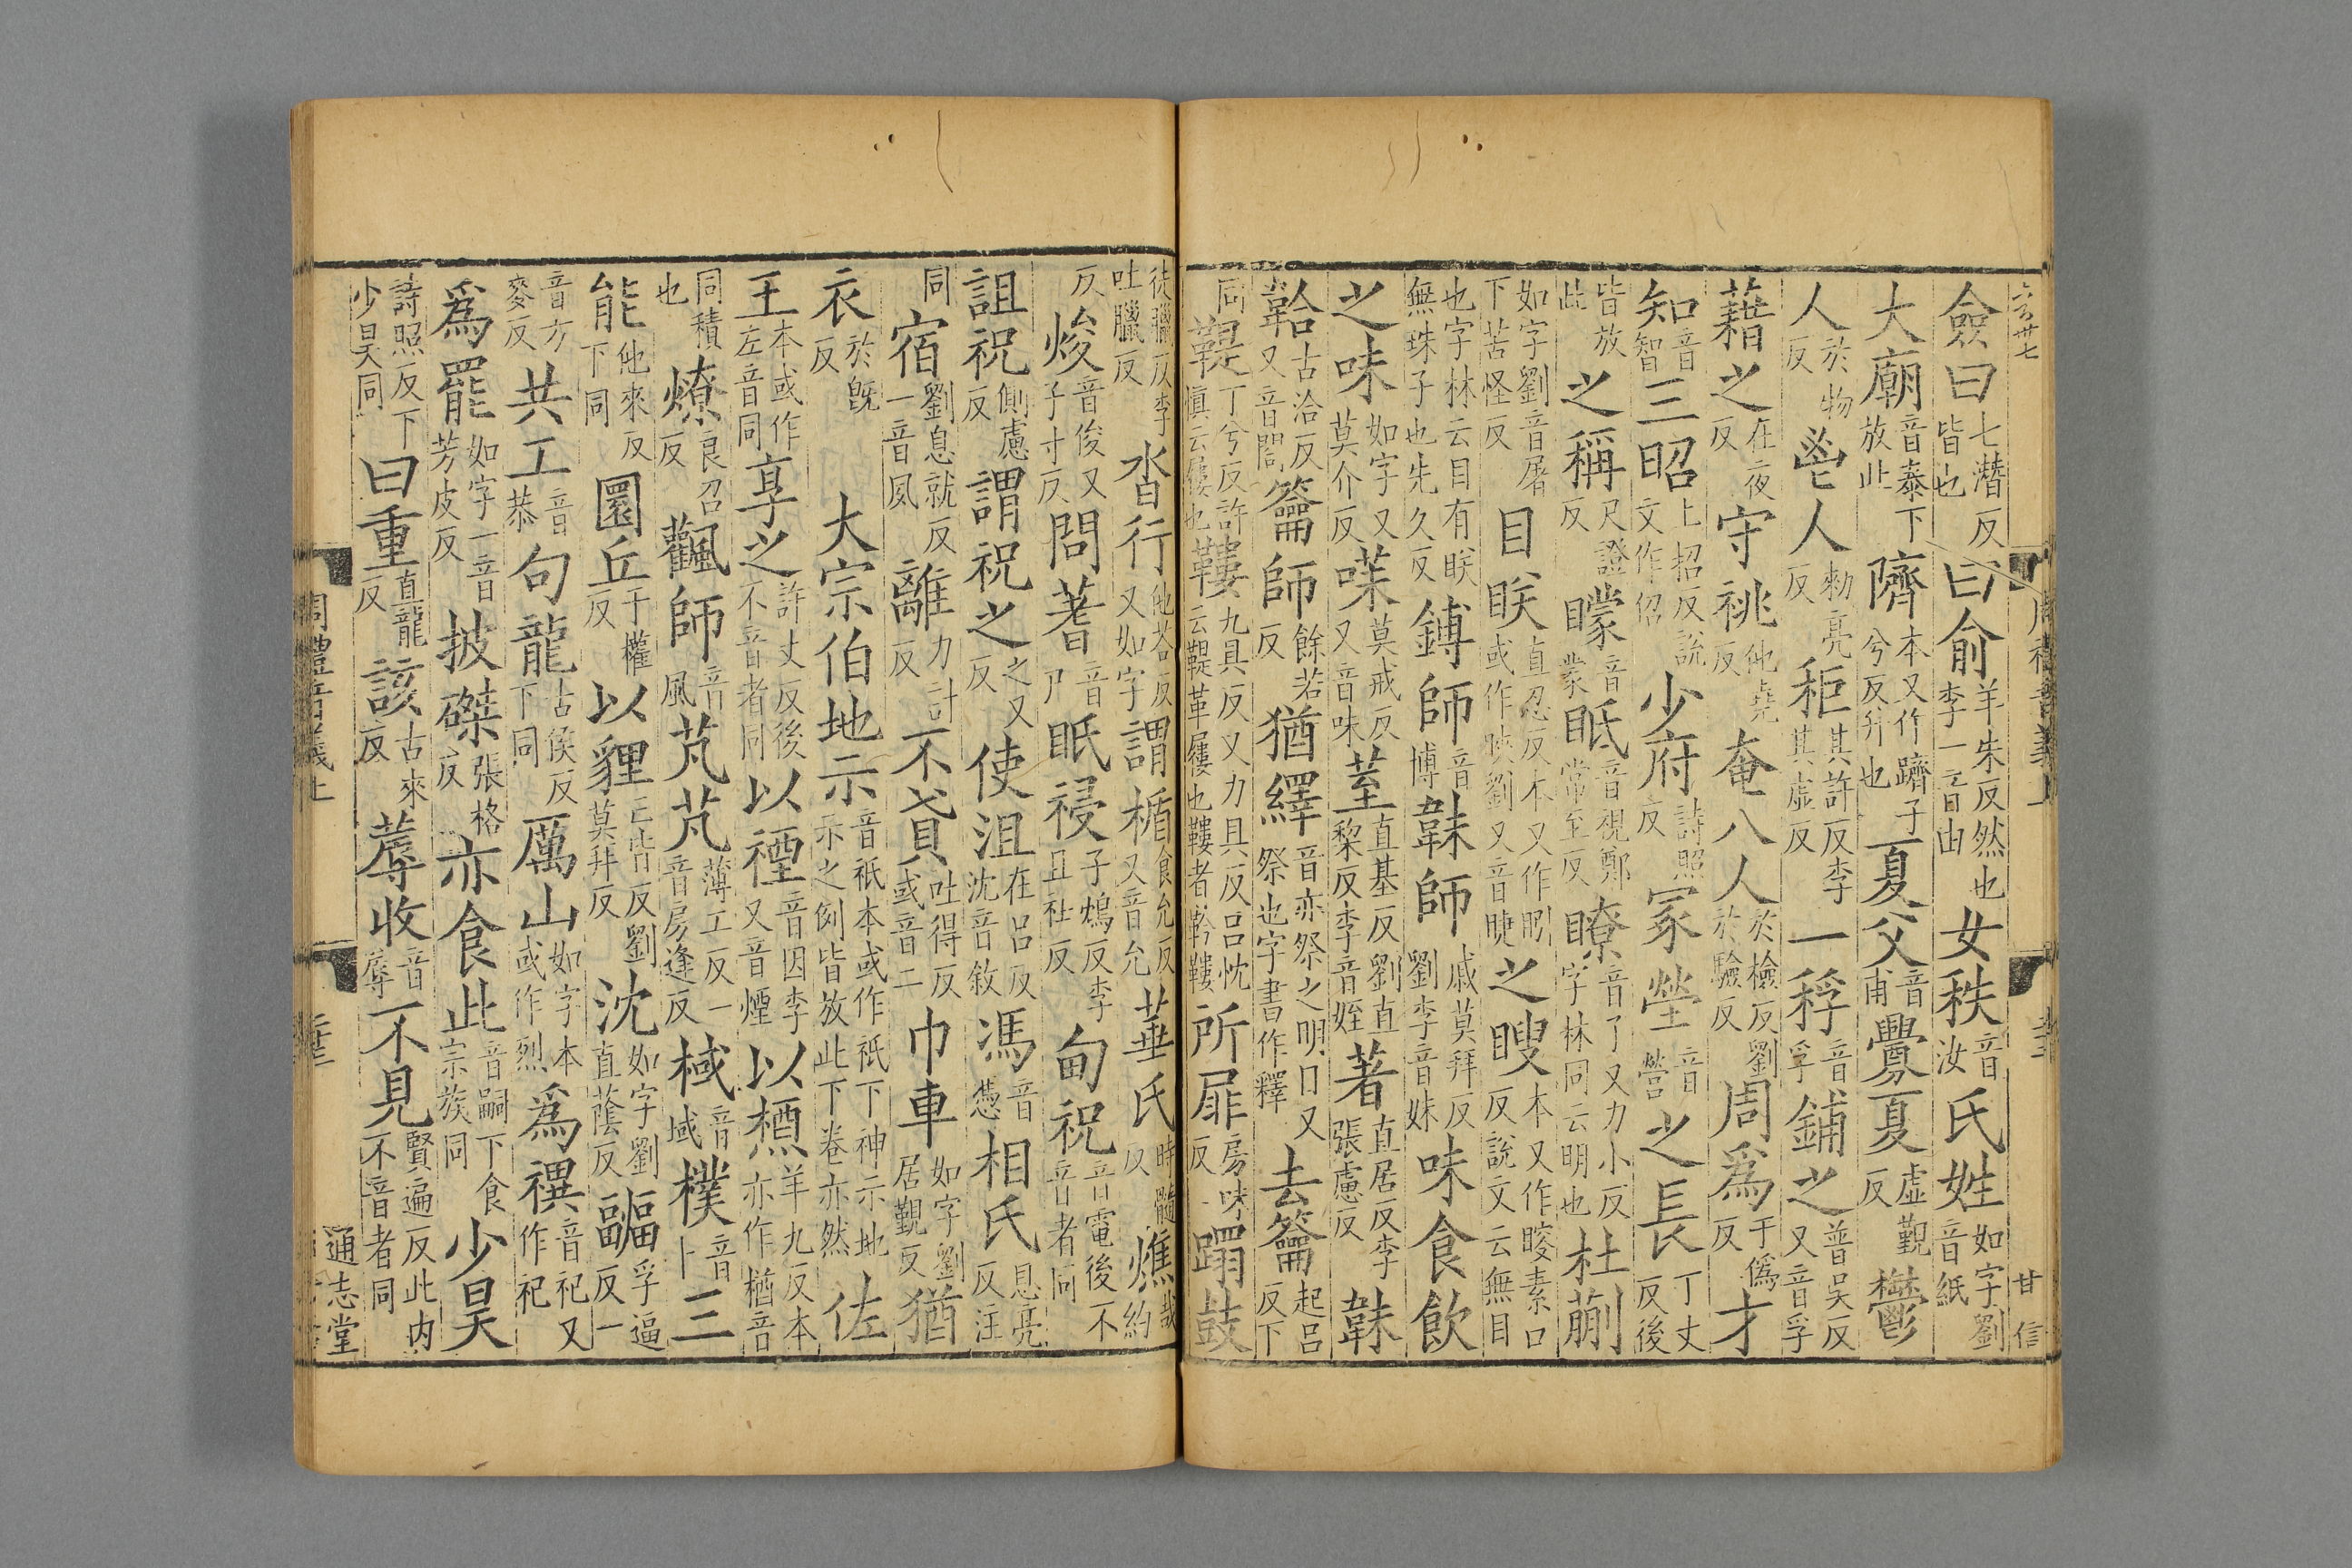 僉曰七潛反皆也曰俞羊朱反然也李一音由女秩音汝氏姓如字劉音紙
大廟音泰下放此隮本又作躋子兮反升也夏父音甫釁夏虛覲反鬱
人於物反鬯人勑亮反秬其許反李其虛反一稃音孚鋪之普吴反又音孚
藉之在夜反守祧他堯反奄八人於檢反劉於驗反周爲于僞反才
知音智三昭上招反說文作佋少府詩照反冢塋音營之長丁丈反後
皆放此之稱尺證反矇音蒙眡音視鄭常至反瞭音了又力小反字林同云明也杜蒯
如字劉音屠下苦怪反目眹直忍反本又作䀕或作眣劉又音睫之瞍本又作䁓素口反說文云無目
也字林云目有眹無珠子也先久反鎛師音博韎師戚莫拜反劉李音妹味食飲
之味如字又莫介反䓊莫戒反又音味荎直基反劉直黎反李音姪著直居反李張慮反韎
韐古洽反又音閤籥師餘若反猶繹音亦祭之明日又祭也字書作釋去籥起呂反下
同鞮丁兮反許慎云屨也鞻九具反又力具反呂忱云鞮革屨也鞻者靲鞻所屝房味反蹋鼓
徒臘反李吐臘反沓行他荅反又如字謂楯食允反又音允菙氏時髓反燋哉約
反焌音俊又子寸反問蓍音尸眡祲子鴆反李且祉反甸祝音電後不音者同
詛祝側慮反謂祝之之又反使沮在呂反沈音敘馮音憑相氏息亮反注
同宿劉息就反一音夙離力計反不貣吐得反或音二巾車如字劉居覲反猶
衣於旣反大宗伯地示音祇本或作祇下神示地示之例皆放此下卷亦然佐
王本或作左音同享之許丈反後不音者同以禋音因李又音煙以槱羊九反本亦作楢音
同積也燎良召反飌師音風芃芃薄工反一音房逢反棫音域樸音卜三
能他來反下同圜丘于權反以貍亡皆反劉莫拜反沈如字劉直蔭反疈孚逼反一
音方麥反共工音恭句龍古侯反下同厲山如字本或作烈爲禩音祀又作祀
爲罷如字一音芳皮反披磔張格反亦食此音嗣下食宗族同少昊
詩照反下少昊同曰重直龍反該古來反蓐收音辱不見賢遍反此内不音者同
周禮音義上
通志堂
甘信